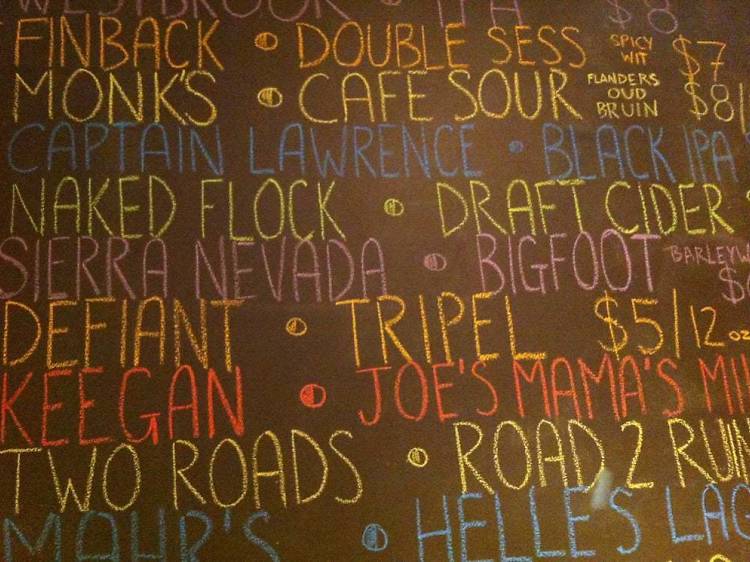 WESTBROOK IPA $8
FINBACK DOUBLE SESS SPICY WIT $7
MONK'S CAFE SOUR FLANDERS OUD BRUIN $8
CAPTAIN LAWRENCE BLACK IPA
NAKED FLOCK DRAFT CIDER
SIERRA NEVADA BIGFOOT BARLEYW $
DEFIANT TRIPEL $5/12 oz
KEEGAN JOE'S MAMA'S MI
TWO ROADS ROAD 2 RUI
HELLES LAG